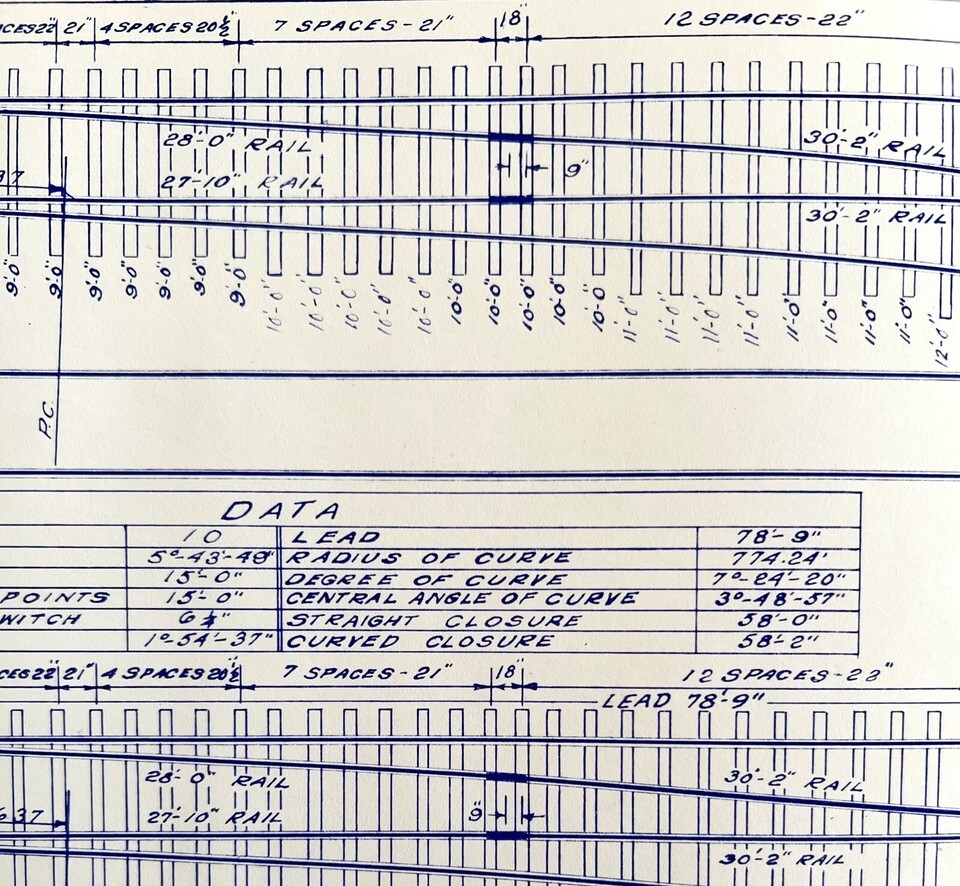 22" 21" 4 SPACES 20½" 7 SPACES - 21" 18" 12 SPACES - 22"
28'-0" RAIL 30'-2" RAIL
9"
27'-10" RAIL
37
30'-2" RAIL
9'-0" 9'-0" 9'-0" 9'-0" 9'-0" 9'-0" 9'-0" 10'-0" 10'-0" 10'-0" 10'-0" 10'-0" 10'-0" 10'-0" 10'-0" 10'-0" 10'-0" 11'-0" 11'-0" 11'-0" 11'-0" 11'-0" 11'-0" 11'-0" 11'-0" 12'-0"
P.C.
DATA
10 LEAD 78'-9"
5°-43'-48" RADIUS OF CURVE 774.24'
15'-0" DEGREE OF CURVE 7°-24'-20"
POINTS 15'-0" CENTRAL ANGLE OF CURVE 3°-48'-57"
WITCH STRAIGHT CLOSURE 58'-0"
1°-54'-37" CURVED CLOSURE 58'-2"
22" 21" 4 SPACES 20½" 7 SPACES - 21" 18" 12 SPACES - 22"
LEAD 78'-9"
28'-0" RAIL 30'-2" RAIL
637 27'-10" RAIL 9"
30'-2" RAIL